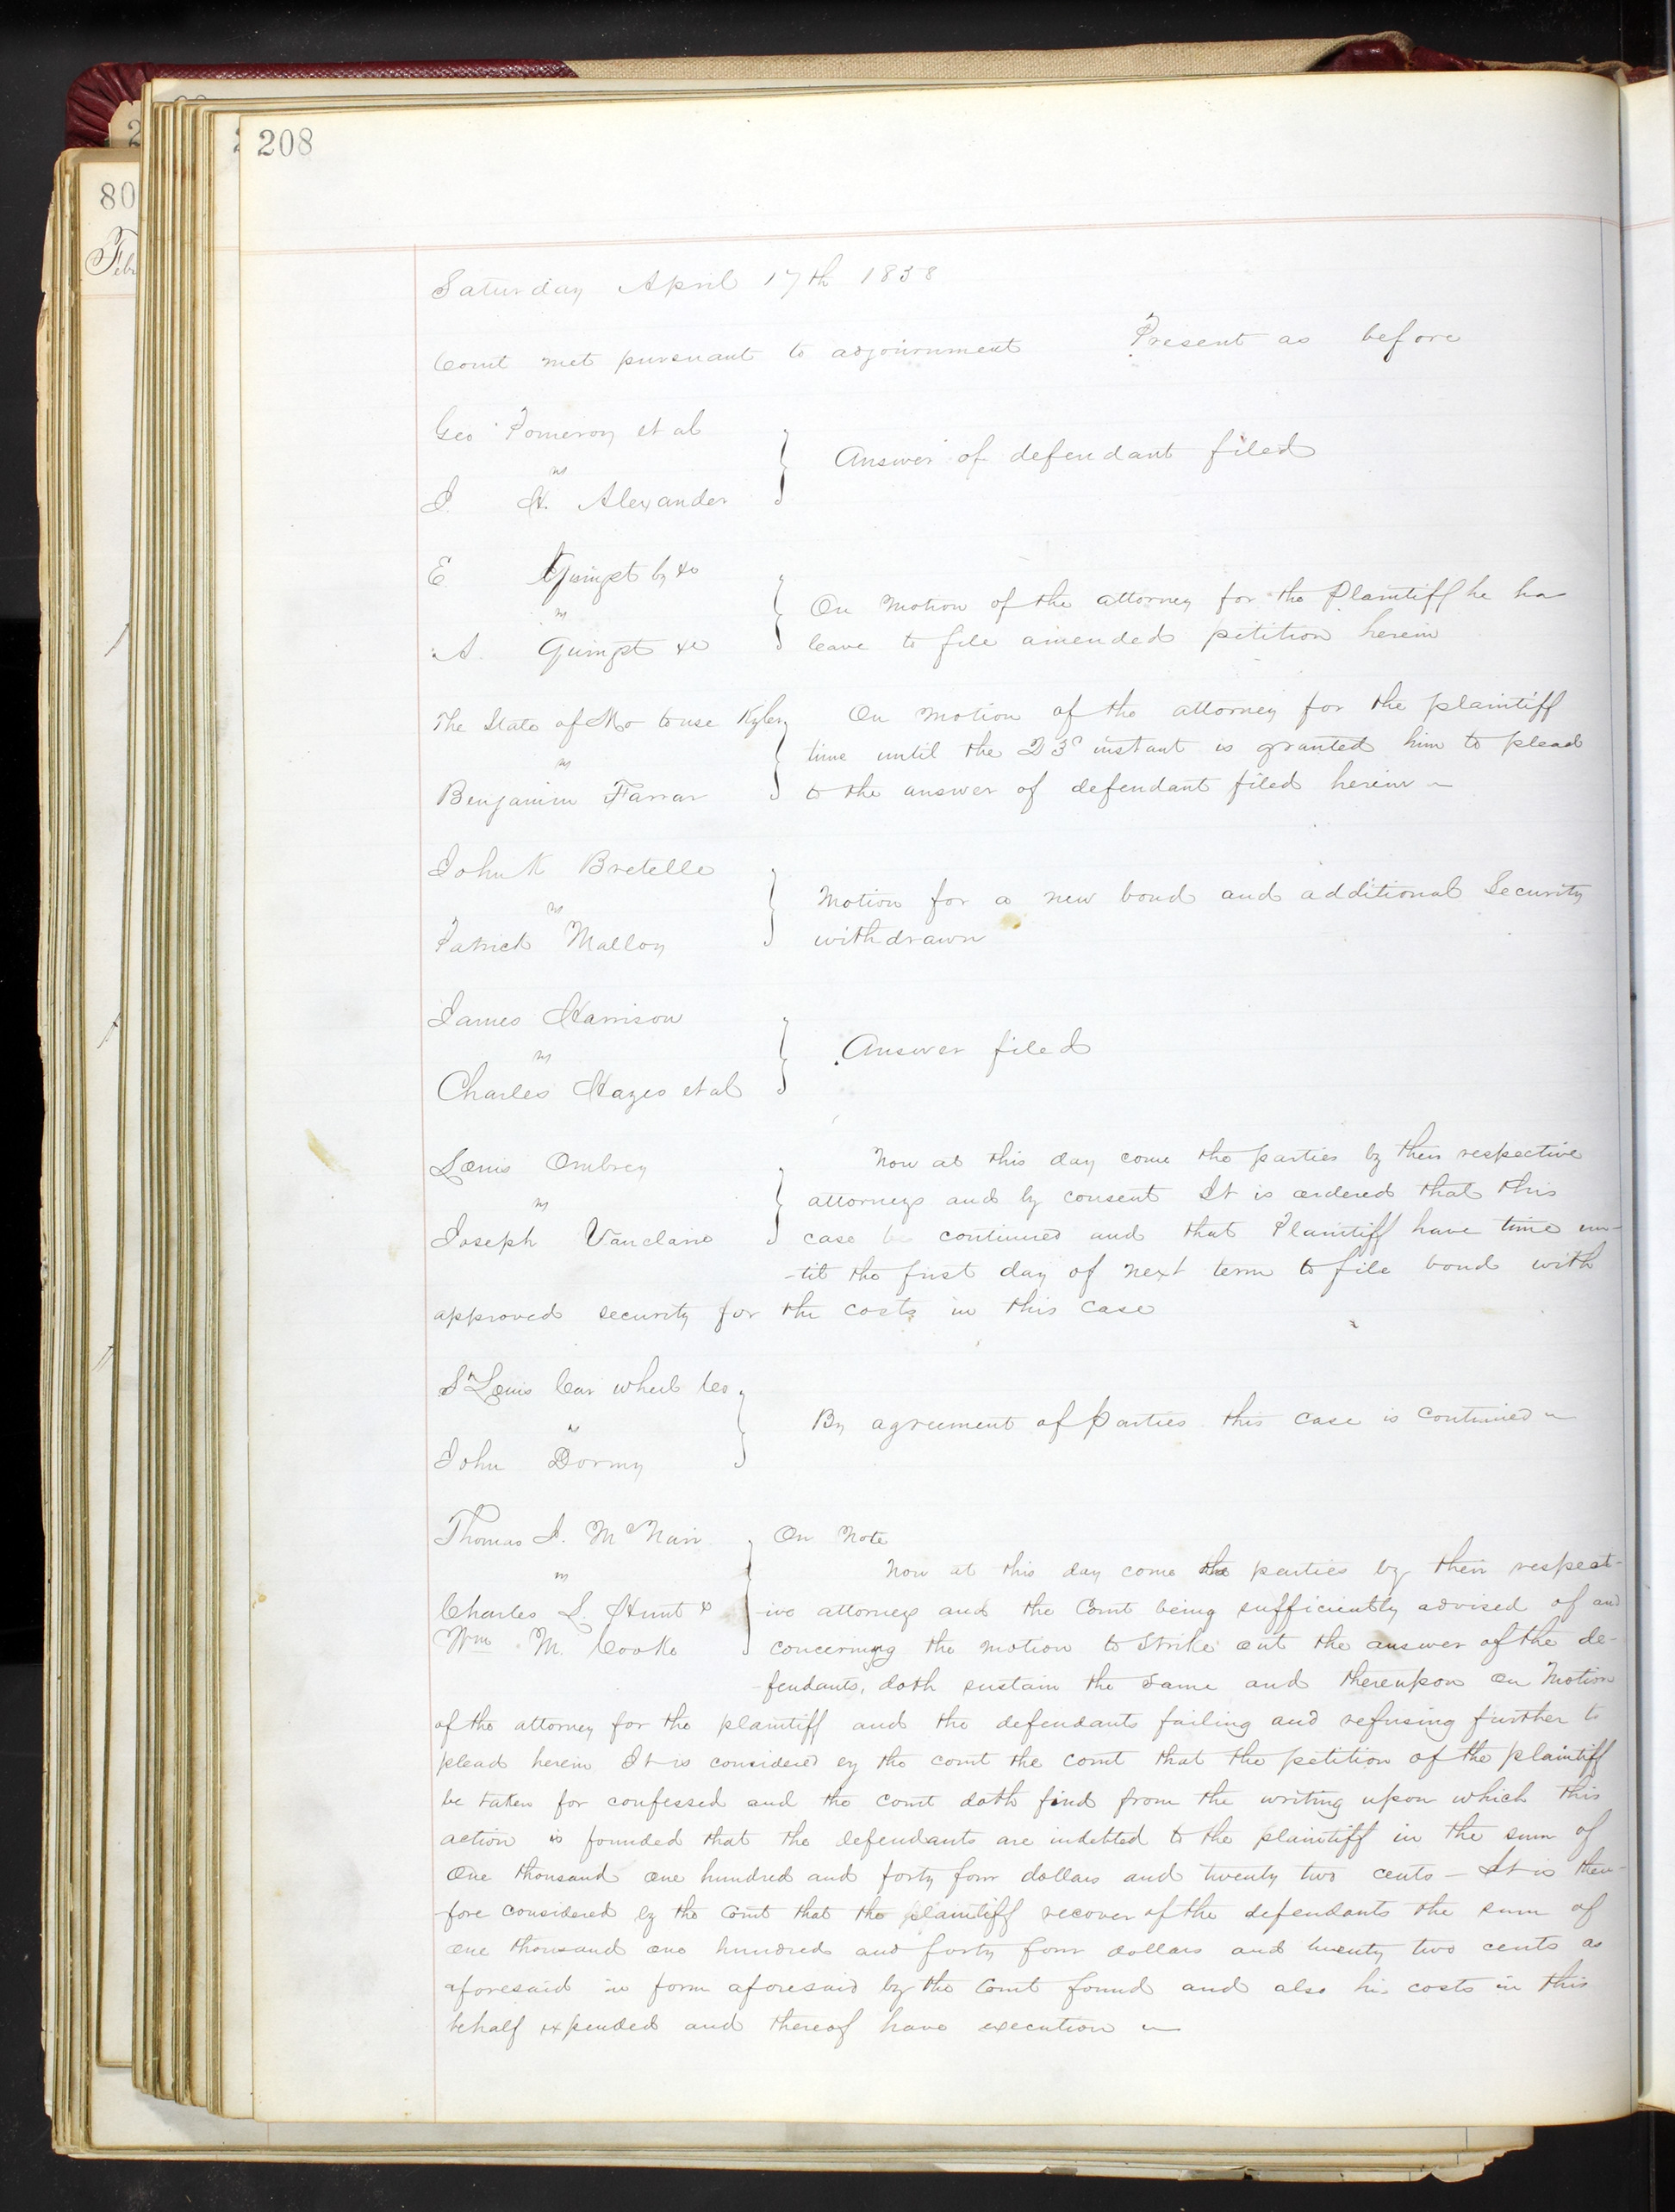 208
80
Febr
Saturday April 17th 1838
Court met pursuant to adjournment Present as before
Geo Pomeroy et al
vs
J. H. Alexander
Answer of defendant filed
E Guingst by &c
vs
A. Guingst &c
On Motion of the attorney for the Plaintiff he has
leave to file amended petition herein
The State of Mo to use
vs
Benjamin Farrar
On Motion of the attorney for the plaintiff
time until the 23d instant is granted him to plead
to the answer of defendant filed herein ~
John K Bretelle
vs
Patrick Malloy
Motion for a new bond and additional Security
withdrawn
James Harrison
vs
Charles Hazes et al
Answer filed
Louis Ombrey
vs
Joseph Vanclave
Now at this day come the parties by their respective
attorneys and by consent It is ordered that this
case be continued and that Plaintiff have time un-
-til the first day of next term to file bond with
approved security for the costs in this case
St Louis Car wheel Co
vs
John Dormy
By agreement of parties this case is continued ~
Thomas J. McNair
vs
Charles L. Hunt &
Wm M. Cooke
On Note
Now at this day come the parties by their respect-
-ive attorneys and the Court being sufficiently advised of and
concerning the motion to Strike out the answer of the de-
-fendants, doth sustain the same and thereupon on Motion
of the attorney for the plaintiff and the defendants failing and refusing further to
plead herein It is considered by the court the court that the petition of the plaintiff
be taken for confessed and the court doth find from the writing upon which this
action is founded that the defendants are indebted to the plaintiff in the sum of
One thousand one hundred and forty four dollars and twenty two cents — It is there-
-fore considered by the Court that the plaintiff recover of the defendants the sum of
one thousand one hundred and forty four dollars and twenty two cents as
aforesaid in form aforesaid by the Court found and also his costs in this
behalf expended and thereof have execution ~